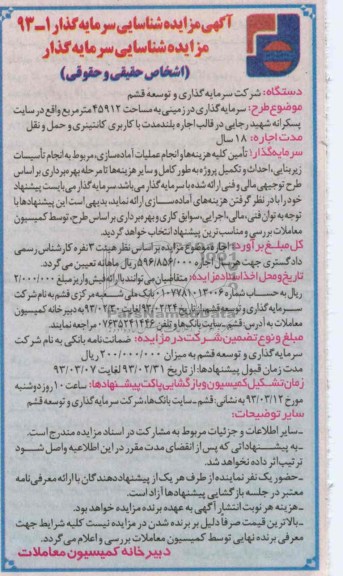 آگهی مزایده شناسایی سرمایه گذار ۱-۹۳
مزایده شناسایی سرمایه گذار
(اشخاص حقیقی و حقوقی)
دستگاه: شرکت سرمایه گذاری و توسعه قشم
موضوع طرح: سرمایه گذاری در زمینی به مساحت ۴۵۹۱۲ مترمربع واقع در سایت
پسکرانه شهید رجایی در قالب اجاره بلندمدت با کاربری کانتینری و حمل و نقل
مدت اجاره: ۱۸ سال
سرمایه گذار: تأمین کلیه هزینه ها و انجام عملیات آماده سازی، مربوط به انجام تأسیسات
زیربنایی، احداث و تکمیل پروژه به طور کامل و سایر هزینه ها تا مرحله بهره برداری بر اساس
طرح توجیهی مالی و فنی ارائه شده با سرمایه گذار می باشد. سرمایه گذار می بایست پیشنهاد
خود را با در نظر گرفتن هزینه های آماده سازی ارائه نماید، بدیهی است این پیشنهادها با
توجه به توان فنی، مالی، اجرایی، سوابق کاری و بهره برداری بر اساس طرح، توسط کمیسیون
معاملات بررسی و مناسب ترین پیشنهاد انتخاب خواهد گردید.
کل مبلغ برآورد: اجاره موضوع مزایده بر اساس نظر هیئت ۳ نفره کارشناس رسمی
دادگستری جهت هر سال اجاره ۵۹۶/۸۵۶/۰۰۰ ریال ماهانه تعیین می گردد.
تاریخ و محل اخذ اسناد مزایده: متقاضیان می توانند با ارائه فیش واریز مبلغ ۲/۰۰۰/۰۰۰
ریال به حساب شماره ۰۱۰۷۷۸۱۰۱۳۰۰۶ بانک ملی شعبه مرکزی قشم به نام شرکت
سرمایه گذاری و توسعه قشم از تاریخ ۹۳/۰۲/۲۴ لغایت ۹۳/۰۲/۳۰ به دبیرخانه کمیسیون
معاملات به آدرس: قشم- سایت بانک ها و تلفن ۰۷۶۳۵۲۴۱۴۴۶ مراجعه نمایند.
مبلغ و نوع تضمین شرکت در مزایده: ضمانت نامه بانکی به نام شرکت
سرمایه گذاری و توسعه قشم به میزان ۲۰۰/۰۰۰/۰۰۰ ریال
مدت زمان قبول پیشنهادها: از تاریخ ۹۳/۰۲/۳۱ لغایت ۹۳/۰۳/۰۷
زمان تشکیل کمیسیون و بازگشایی پاکت پیشنهادها: ساعت ۱۰ روز دوشنبه
مورخ ۹۳/۰۳/۱۲ به نشانی: قشم- سایت بانک ها، شرکت سرمایه گذاری و توسعه قشم
سایر توضیحات:
-سایر اطلاعات و جزئیات مربوط به مشارکت در اسناد مزایده مندرج است.
-به پیشنهاداتی که پس از انقضای مدت مقرر در این اطلاعیه واصل شود
ترتیب اثر داده نخواهد شد.
-حضور یک نفر نماینده از طرف هر یک از پیشنهاددهندگان با ارائه معرفی نامه
معتبر در جلسه بازگشایی پیشنهادها آزاد است.
-هزینه هر نوبت انتشار آگهی به عهده برنده مزایده خواهد بود.
-بالاترین قیمت صرفاً دلیل بر برنده شدن در مزایده نیست کلیه شرایط جهت
معرفی برنده نهایی توسط کمیسیون معاملات بررسی و اعلام می گردد.
دبیرخانه کمیسیون معاملات